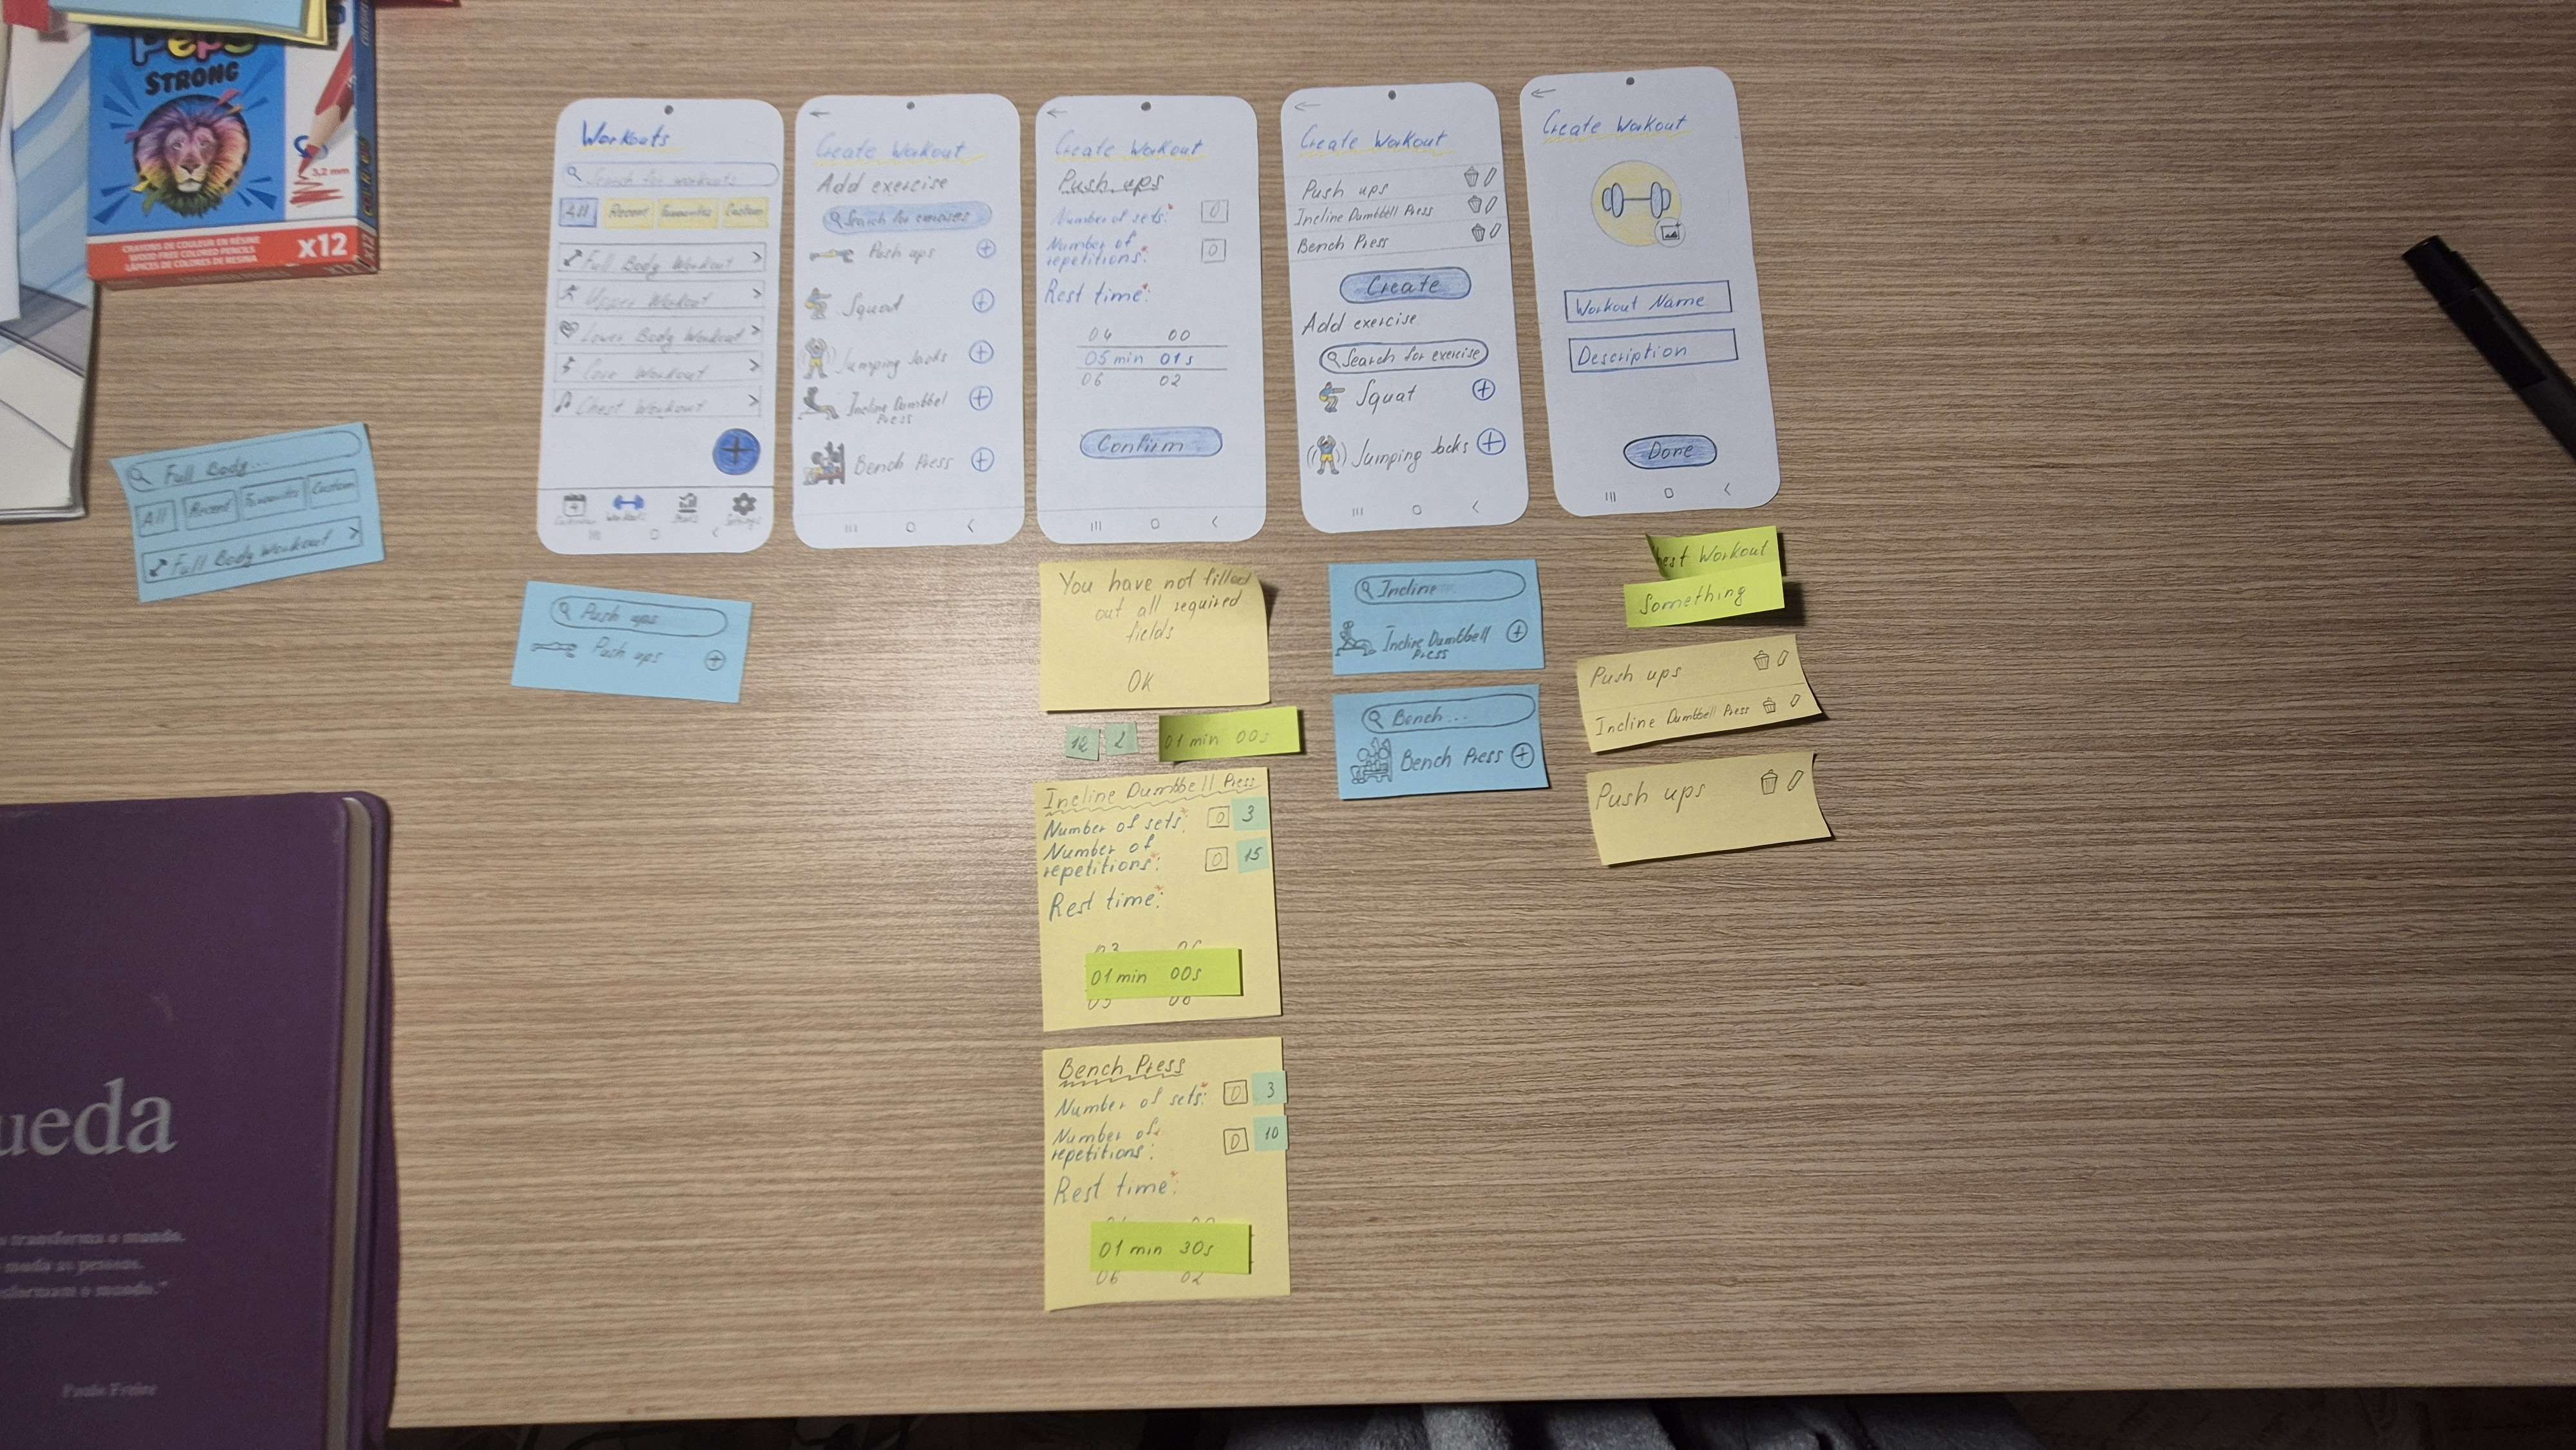 PEPS
STRONG
3,2 mm
CRAYONS DE COULEUR EN RÉSINE
WOOD FREE COLORED PENCILS
LÁPICES DE COLORES DE RESINA
x12
Workouts
Search for workouts
All Recent Favourites Custom
Full Body Workout >
Upper Workout >
Lower Body Workout >
Core Workout >
Chest Workout >
+
Calendar Workouts Stats Settings
Create Workout
Add exercise
Search for exercises
Push ups +
Squat +
Jumping Jacks +
Incline Dumbbel
Press +
Bench Press +
Create Workout
Push ups
Number of sets:* 0
Number of
repetitions:* 0
Rest time:*
04 00
05 min 01s
06 02
Confirm
Create Workout
Push ups
Incline Dumbbell Press
Bench Press
Create
Add exercise
Search for exercise
Squat +
Jumping Jacks +
Create Workout
Workout Name
Description
Done
Full Body...
All Recent Favourites Custom
Full Body Workout >
Push ups
Push ups +
You have not filled
out all required
fields
OK
12 2 01 min 00s
Incline Dumbbell Press
Number of sets:* 0 3
Number of
repetitions:* 0 15
Rest time:*
01 min 00s
Bench Press
Number of sets:* 0 3
Number of*
repetitions: 0 10
Rest time:*
01 min 30s
06 02
Incline
Incline Dumbbell
Press +
Bench...
Bench Press +
est Workout
Something
Push ups
Incline Dumbbell Press
Push ups
ueda
transforma o mundo.
muda as pessoas.
sformam o mundo."
Paulo Freire